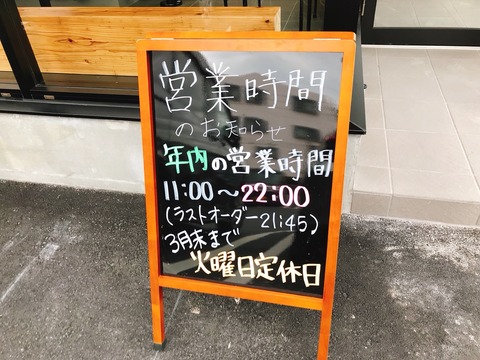 営業時間
のお知らせ
年内の営業時間
11:00～22:00
(ラストオーダー21:45)
3月末まで
火曜日定休日